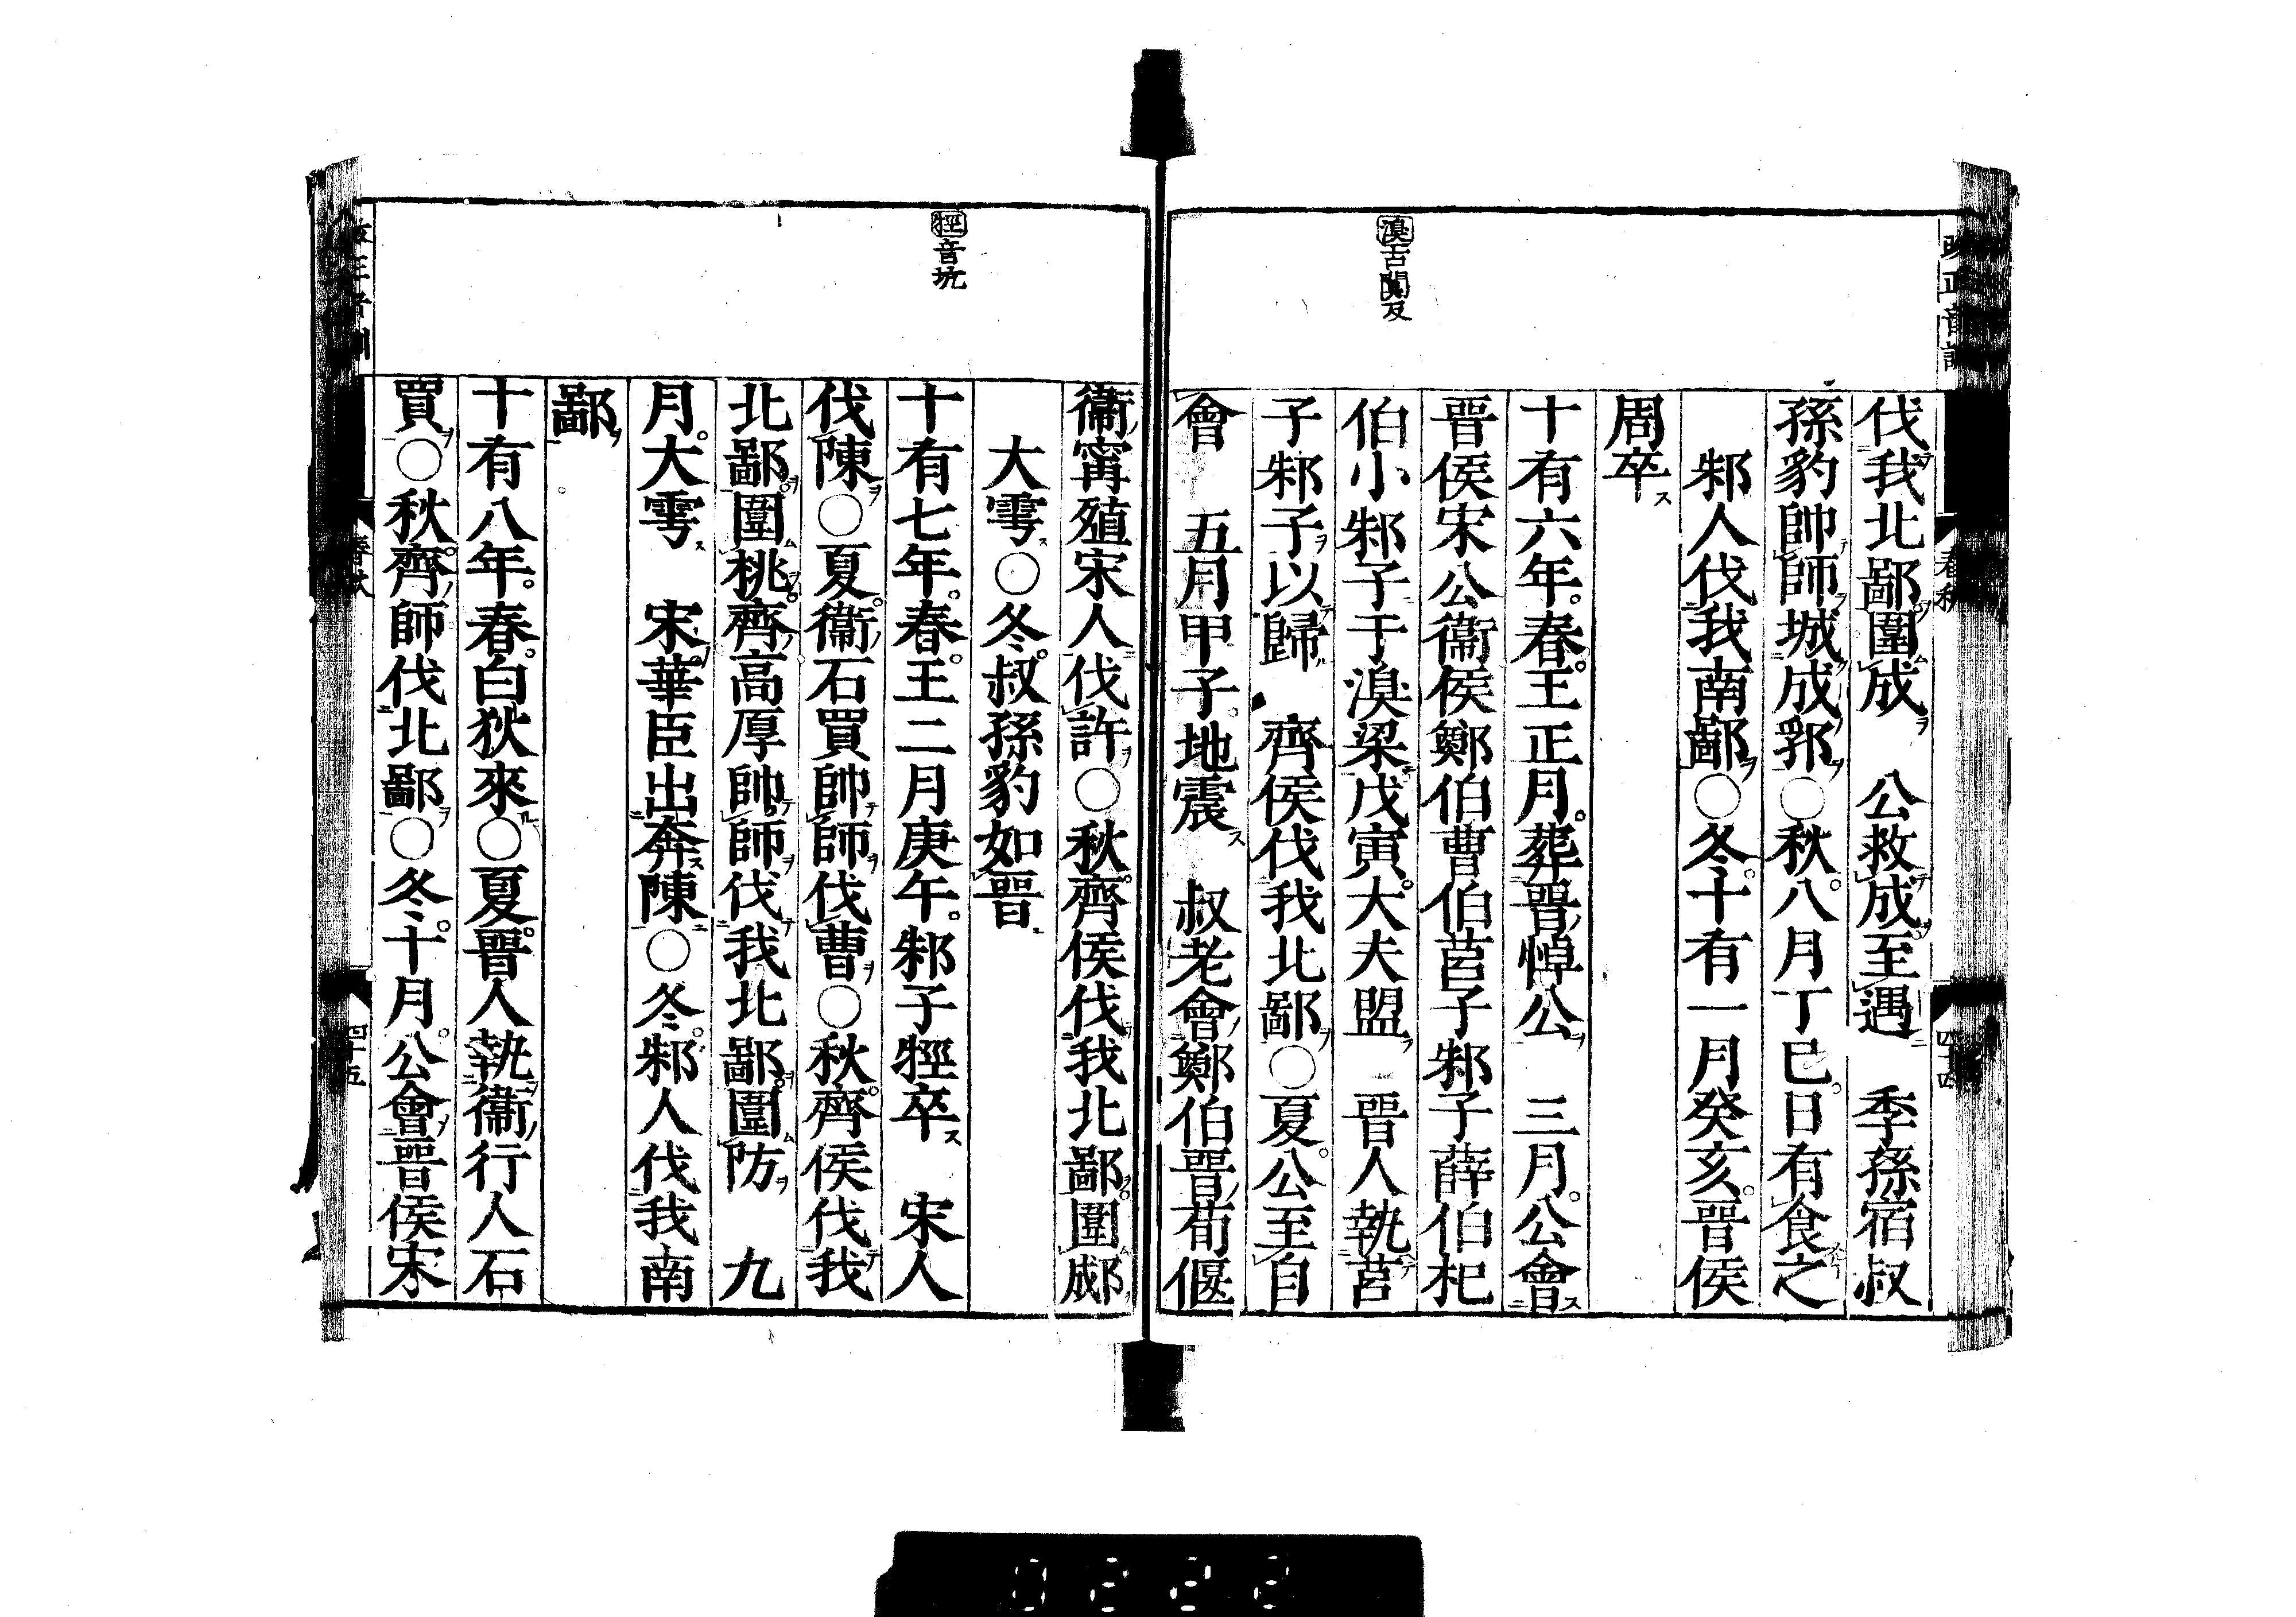 湨古闃反
伐我北鄙圍成　公救成至遇　季孫宿叔
孫豹帥師城成郛○秋八月丁巳日有食之
邾人伐我南鄙○冬十有一月癸亥晉侯
周卒
十有六年春王正月葬晉悼公　三月公會
晉侯宋公衞侯鄭伯曹伯莒子邾子薛伯杞
伯小邾子于湨梁戊寅大夫盟　晉人執莒
子邾子以歸　齊侯伐我北鄙○夏公至自
會　五月甲子地震　叔老會鄭伯晉荀偃
春秋
四十四
牼音坑
衞甯殖宋人伐許○秋齊侯伐我北鄙圍郕
大雩○冬叔孫豹如晉
十有七年春王二月庚午邾子牼卒　宋人
伐陳○夏衞石買帥師伐曹○秋齊侯伐我
北鄙圍桃齊高厚帥師伐我北鄙圍防　九
月大雩　宋華臣出奔陳○冬邾人伐我南
鄙
十有八年春白狄來○夏晉人執衞行人石
買○秋齊師伐北鄙○冬十月公會晉侯宋
春秋
四十五
0222